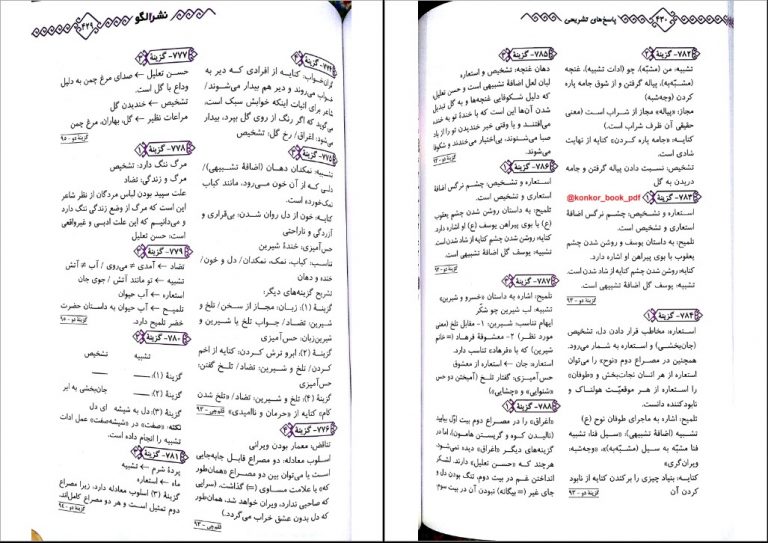 ۴۳۰
پاسخ‌های تشریحی
۷۸۲- گزینهٔ
تشبیه: من (مشبّه)، چو (ادات تشبیه)، غنچه
(مشبّه‌به)، پیاله گرفتن و از شوق جامه پاره
کردن (وجه‌شبه)
مجاز: «پیاله» مجاز از شراب است (معنی
حقیقی آن ظرف شراب است.)
کنایه: «جامه پاره کردن» کنایه از نهایت
شادی است.
تشخیص: نسبت دادن پیاله گرفتن و جامه
دریدن به گل
۷۸۳- گزینهٔ ۱
@konkor_book_pdf
استعاره و تشخیص: چشم نرگس اضافهٔ
استعاری و تشخیص است.
تلمیح: به داستان یوسف و روشن شدن چشم
یعقوب با بوی پیراهن او اشاره دارد.
کنایه: روشن شدن چشم کنایه از شاد شدن است.
تشبیه: یوسف گل اضافهٔ تشبیهی است.
گزینه دو - ۹۳
۷۸۴- گزینهٔ ۱
استعاره: مخاطب قرار دادن دل، تشخیص
(جان‌بخشی) و استعاره به شمار می‌رود.
همچنین در مصراع دوم «نوح» را می‌توان
استعاره از هر انسان نجات‌بخش و «طوفان»
را استعاره از هر موقعیّت هولناک و
نابودکننده دانست.
تلمیح: اشاره به ماجرای طوفان نوح (ع)
تشبیه (اضافهٔ تشبیهی): «سیل فنا، تشبیه
فنا مشبّه به سیل (مشبّه‌به)»، «وجه‌شبه:
ویران‌گری»
کنایه: بنیاد چیزی را برکندن کنایه از نابود
کردن آن
گزینه دو - ۹۳
۷۸۵- گزینهٔ
دهان غنچه: تشخیص و استعاره
لبان لعل اضافهٔ تشبیهی است و حسن تعلیل
که دلیل شکوفایی غنچه‌ها و به گل تبدیل
شدن آن‌ها این است که با خندهٔ تو به خنده
می‌افتند و یا وقتی خبر خندیدن تو را از باد
صبا می‌شنوند، بی‌اختیار می‌خندند و شکوفا
می‌شوند.
۷۸۶- گزینهٔ ۱
استعاره و تشخیص: چشم نرگس اضافهٔ
استعاری و تشخیص است.
تلمیح: به داستان روشن شدن چشم یعقوب
(ع) با بوی پیراهن یوسف (ع) او اشاره دارد.
کنایه: روشن شدن چشم کنایه از شاد شدن است.
تشبیه: یوسف گل اضافهٔ تشبیهی است.
۷۸۷- گزینهٔ
تلمیح: اشاره به داستان «خسرو و شیرین»
تشبیه: لب شیرین چو شکّر
ایهام تناسب: شیرین: ۱- مقابل تلخ (معنی
مورد نظر) ۲- معشوقهٔ فرهاد (= خانم
شیرین) که با «فرهاد» تناسب دارد.
استعاره: جان ← استعاره از معشوق
حس‌آمیزی: گفتار تلخ (آمیختن دو حس
«شنوایی» و «چشایی»)
۷۸۸- گزینهٔ ۱
«اغراق» را در مصراع دوم بیت اوّل بیابید
(نالیدن کوه و گریستن هامون)، اما در
گزینه‌های دیگر «اغراق» دیده نمی‌شود.
هرچند که «حسن تعلیل» دارند. لشکر
انداختن غم در بیت دوم، تنگ بودن دل و
جای غیر (= بیگانه) نبودن آن در بیت سوم.
۴۲۹
نشر الگو
گران‌خواب: کنایه از افرادی که دیر به
خواب می‌روند و دیر هم بیدار می‌شوند/
شاعر برای اثبات اینکه خوابش سبک است،
می‌گوید که اگر رنگ از روی گل بپرد، بیدار
می‌شود: اغراق/ رخ گل: تشخیص
۷۷۵- گزینهٔ
تشبیه: نمکدان دهان (اضافهٔ تشبیهی)/
دلی که از آن خون می‌رود، مانند کباب
نمک‌خورده است.
کنایه: خون از دل روان شدن: بی‌قراری و
آزردگی و ناراحتی
حس‌آمیزی: خندهٔ شیرین
تناسب: کباب، نمک، نمکدان/ دل و خون/
خنده و دهان
تشریح گزینه‌های دیگر:
گزینهٔ (۱): زبان: مجاز از سخن/ تلخ و
شیرین: تضاد/ جواب تلخ یا شیرین و
شیرین‌زبان: حس‌آمیزی
گزینهٔ (۲): ابرو ترش کردن: کنایه از اخم
کردن/ تلخ و شیرین: تضاد/ تلخ گفتن:
حس‌آمیزی
گزینهٔ (۴): تلخ و شیرین: تضاد/ «تلخ شدن
کام» کنایه از «حرمان و ناامیدی»
قلم‌چی - ۹۳
۷۷۶- گزینهٔ
تناقض: معمار بودن ویرانی
اسلوب معادله: دو مصراع قابل جابه‌جایی
است یا می‌توان بین دو مصراع «همان‌طور
که» یا علامت مساوی (=) گذاشت. (سرایی
که صاحبی ندارد، ویران خواهد شد، همان‌طور
که دل بدون عشق خراب می‌گردد.)
قلم‌چی - ۹۳
۷۷۷- گزینهٔ
حسن تعلیل ← صدای مرغ چمن به دلیل
وداع با گل است.
تشخیص ← خندیدن گل
مراعات نظیر ← گل، بهاران، مرغ چمن
گزینه دو - ۹۵
۷۷۸- گزینهٔ ۱
مرگ ننگ دارد: تشخیص
مرگ و زندگی: تضاد
علت سپید بودن لباس مردگان از نظر شاعر
این است که مرگ از وضع زندگی ننگ دارد
و می‌دانیم که این علت ادبی و غیرواقعی
است: حسن تعلیل
۷۷۹- گزینهٔ
تضاد ← آمدی ≠ می‌روی / آب ≠ آتش
تشبیه ← تو مانند آتش / جوی جان
استعاره ← آب حیوان
تلمیح ← آب حیوان به داستان حضرت
خضر تلمیح دارد.
۷۸۰- گزینهٔ
تشبیه تشخیص
گزینهٔ (۱): ــــــــ ــــــــ
گزینهٔ (۲): ــــــــ جان‌بخشی به ابر
گزینهٔ (۳): دل به شیشه ای دل
نکته: «صفت» در «شیشه‌صفت» عمل ادات
تشبیه را انجام داده است.
۷۸۱- گزینهٔ
پردهٔ شرم ← تشبیه
ماه ← استعاره
گزینهٔ (۳) اسلوب معادله دارد، زیرا مصراع
دوم تمثیل است و هر دو مصراع کامل‌اند.